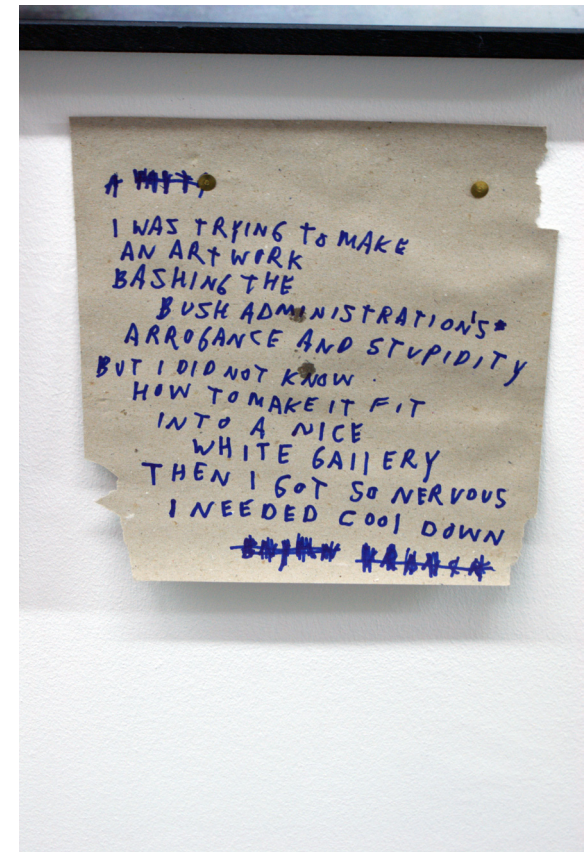 A
I WAS TRYING TO MAKE
AN ART WORK
BASHING THE
BUSH ADMINISTRATION'S*
ARROGANCE AND STUPIDITY
BUT I DID NOT KNOW
HOW TO MAKE IT FIT
INTO A NICE
WHITE GALLERY
THEN I GOT SO NERVOUS
I NEEDED COOL DOWN